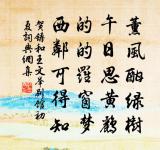 薰風酣綠樹
午日思黃鸝
的的羅窗夢
西鄰可得知
賀鑄和王文舉別館初
夏詞典網集